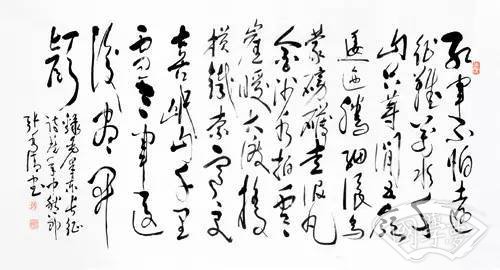 红军不怕远
征难万水千
山只等闲五岭
逶迤腾细浪乌
蒙磅礴走泥丸
金沙水拍云
崖暖大渡桥
横铁索寒更
喜岷山千里
雪三军过
后尽开
颜
录毛泽东长征